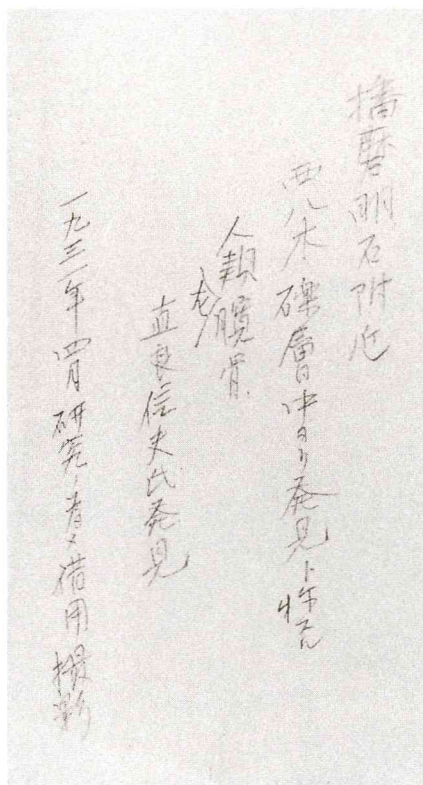 播磨明石附近
西八木礫層中ヨリ発見ト称スル
人類臗骨
左
直良信夫氏発見
一九三一年四月研究ノ為メ借用撮影